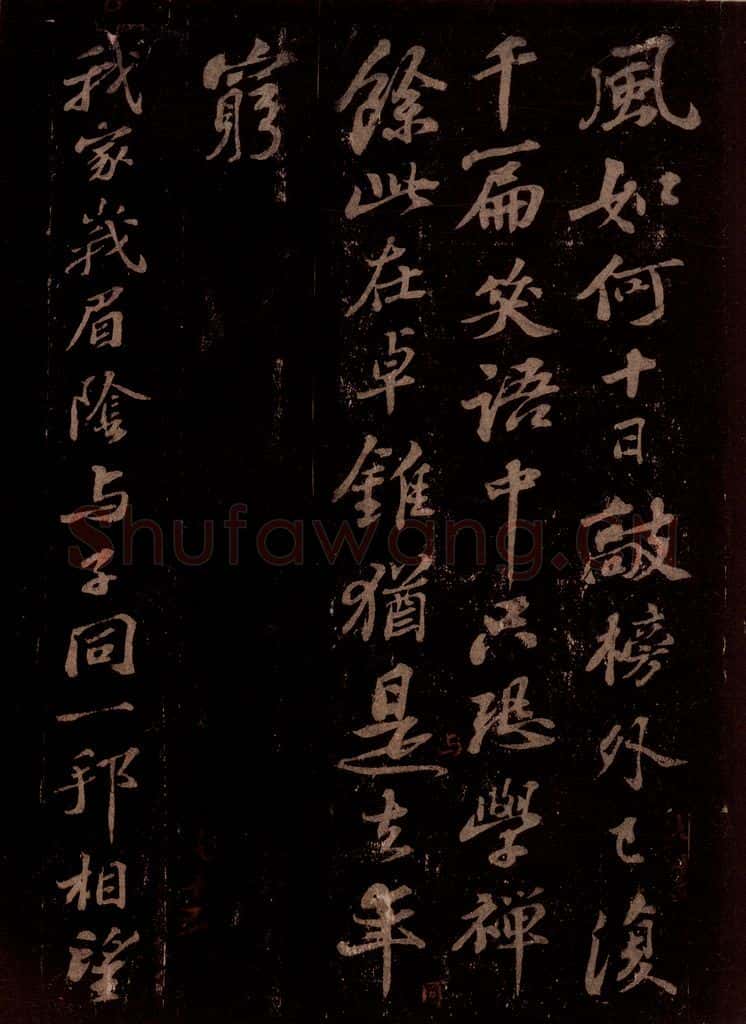 風如何十日敲榜外已復
千篇笑語中只恐學禪
餘此在卓錐猶是去年
窮
我家峩眉陰与子同一邦相望
Shufawang.cn